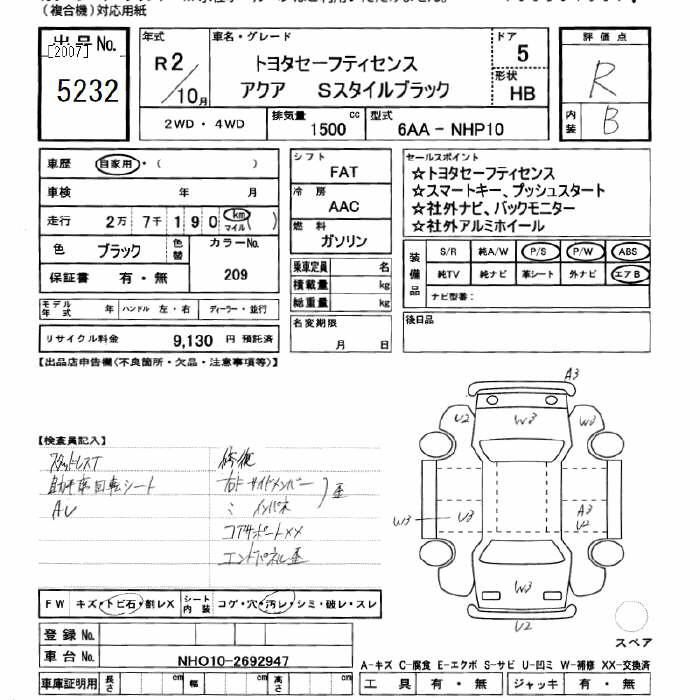 (複合機)対応用紙
出品No.
[2007]
5232
年式
R2/10月
車名・グレード
トヨタセーフティセンス
アクア Sスタイルブラック
ドア
5
形状
HB
評価点
R
内装
B
2WD・4WD
排気量
1500 cc
型式
6AA-NHP10
車歴 自家用・( )
車検 年 月
走行 2万 7千 190 km マイル
色 ブラック
色替
カラーNo.
209
保証書 有・無
モデル年式 年 ハンドル 左・右 ディーラー・並行
リサイクル料金 9,130 円 預託済
シフト
FAT
冷房
AAC
燃料
ガソリン
乗車定員 名
積載量 kg
総重量 kg
名変期限
月 日
セールスポイント
☆トヨタセーフティセンス
☆スマートキー、プッシュスタート
☆社外ナビ、バックモニター
☆社外アルミホイール
装備品
S/R 純A/W P/S P/W ABS
純TV 純ナビ 革シート 外ナビ エアB
ナビ型番:
後日品
【出品店申告欄(不良箇所・欠品・注意事項等)】
【検査員記入】
スタッドレスT
自動車回転シート
AU
修復
右Fサイドメンバー
〃 インパネ
歪
コアサポートXX
エンドパネル歪
A3
U2
W3
W3
W3
U3
A3
U2
W3
U2
FW キズ・トビ石・割レX
シート内装 コゲ・穴・汚レ・シミ・破レ・スレ
登録No.
車台No. NHO10-2692947
車庫証明用 長さ cm 幅 cm 高さ cm
スペア
A-キズ C-腐食 E-エクボ S-サビ U-凹ミ W-補修 XX-交換済
工具 有・無 ジャッキ 有・無